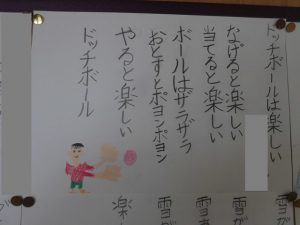 ドッチボールは楽しい
なげると楽しい
当てると楽しい
ボールはザラザラ
おとすとポヨンポヨン
やると楽しい
ドッチボール
雪が
雪が
雪
雪が
楽